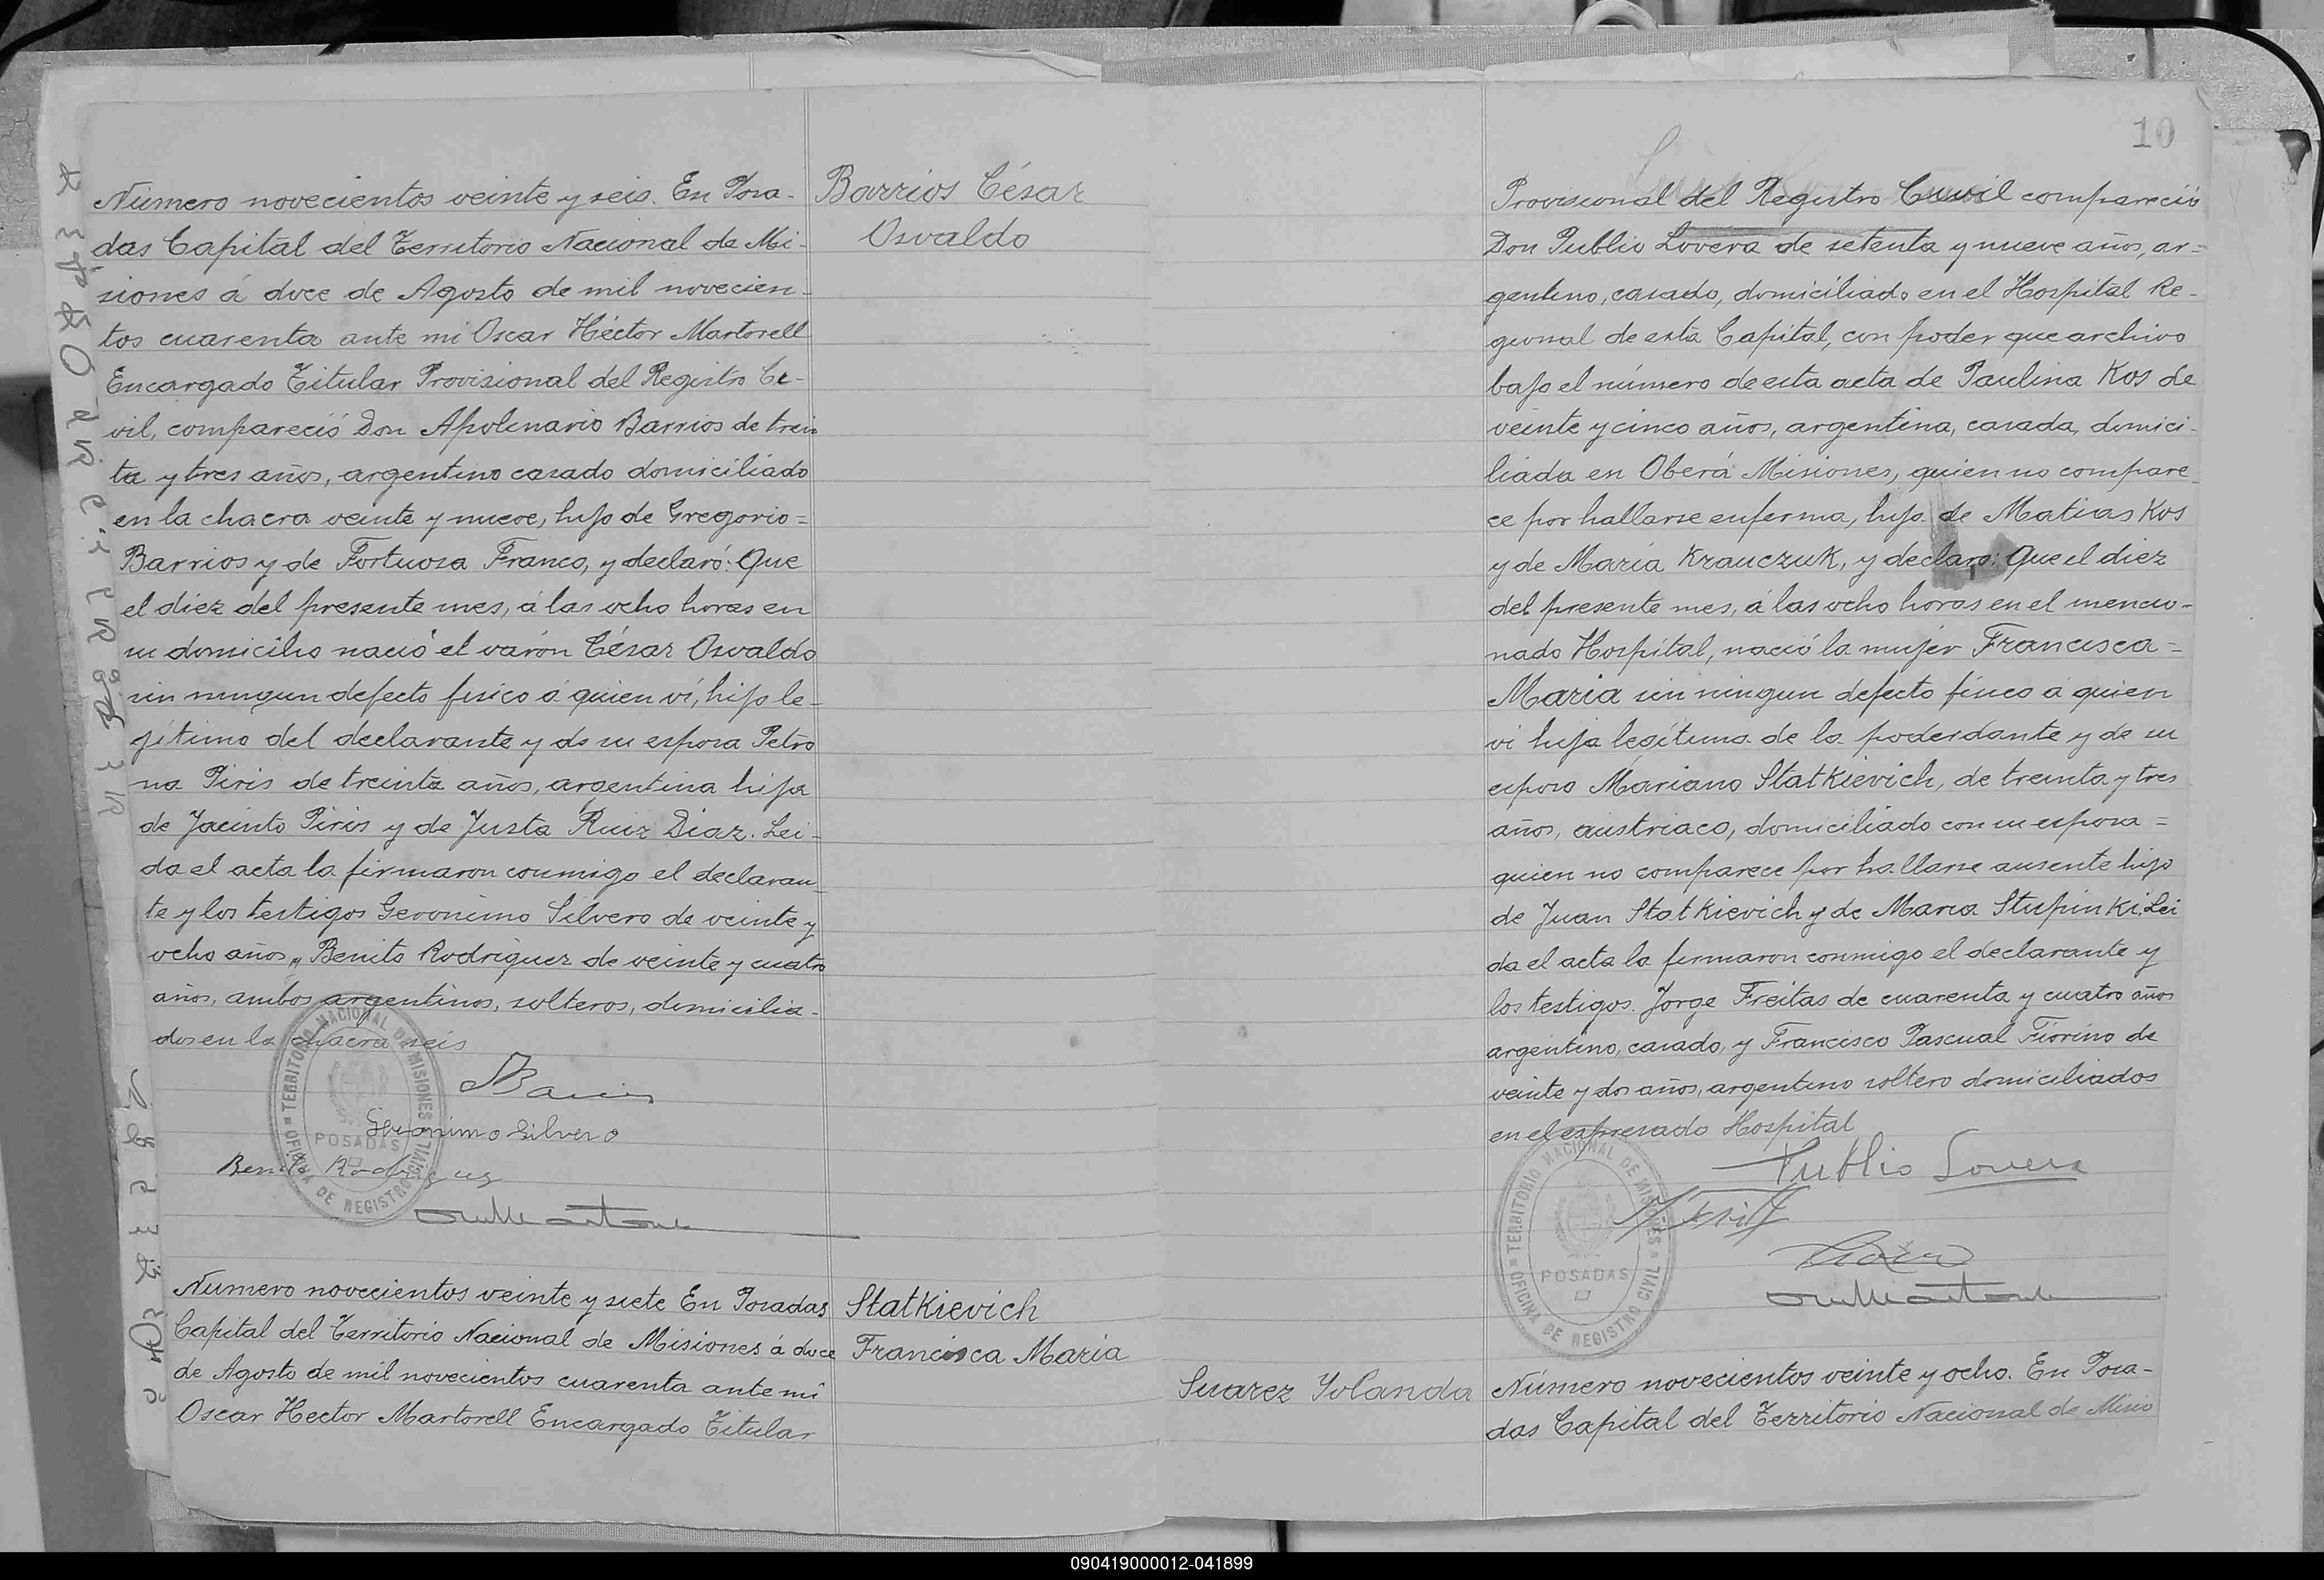 Número novecientos veinte y seis. En Posa-
das Capital del Territorio Nacional de Mi-
siones á doce de Agosto de mil novecien-
tos cuarenta ante mi Oscar Héctor Martorell
Encargado Titular Provisional del Registro Ci-
vil, compareció Don Apolinario Barrios de trein
ta y tres años, argentino casado domiciliado
en la chacra veinte y nueve, hijo de Gregorio=
Barrios y de Fortuosa Franco, y declaró: Que
el diez del presente mes, á las ocho horas en
su domicilio nació el varón César Osvaldo
sin ningun defecto fisico á quien ví, hijo le-
gítimo del declarante y de su esposa Petro
na Piris de treinta años, argentina hija
de Jacinto Piris y de Justa Ruiz Diaz. Lei-
da el acta la firmaron conmigo el declaran-
te y los testigos Geronimo Silvero de veinte y
ocho años y Benito Rodriguez de veinte y cuatro
años, ambos argentinos, solteros, domicilia-
dos en la chacra seis
Barrios César
Osvaldo
TERRITORIO NACIONAL DE MISIONES
OFICINA DE REGISTRO CIVIL
POSADAS
Geronimo Silvero
Benito Rodriguez
Numero novecientos veinte y siete En Posadas
Capital del Territorio Nacional de Misiones á doce
de Agosto de mil novecientos cuarenta ante mi
Oscar Hector Martorell Encargado Titular
Statkievich
Francisca Maria
10
Provisional del Registro Civil compareció
Don Publio Lovera de setenta y nueve años, ar=
gentino, casado, domiciliado en el Hospital Re-
gional de esta Capital, con poder que archivo
bajo el número de esta acta de Paulina Kos de
veinte y cinco años, argentina, casada, domici-
liada en Oberá Misiones, quien no compare
ce por hallarse enferma, hija de Matias Kos
y de María Krauczuk, y declaro: Que el diez
del presente mes, á las ocho horas en el mencio-
nado Hospital, nació la mujer Francisca=
Maria sin ningun defecto físico á quien
vi hija legítima de la poderdante y de su
esposo Mariano Statkievich, de treinta y tres
años, austriaco, domiciliado con su esposa=
quien no comparece por hallarse ausente hijo
de Juan Statkievich y de Maria Stupinki. Lei
da el acta la firmaron conmigo el declarante y
los testigos. Jorge Freitas de cuarenta y cuatro años
argentino, casado, y Francisco Pascual Fiorino de
veinte y dos años, argentino soltero domiciliados
en el expresado Hospital
Publio Lovera
TERRITORIO NACIONAL DE MISIONES
OFICINA DE REGISTRO CIVIL
POSADAS
Suarez Yolanda
Número novecientos veinte y ocho. En Posa-
das Capital del Territorio Nacional de Misio
090419000012-041899